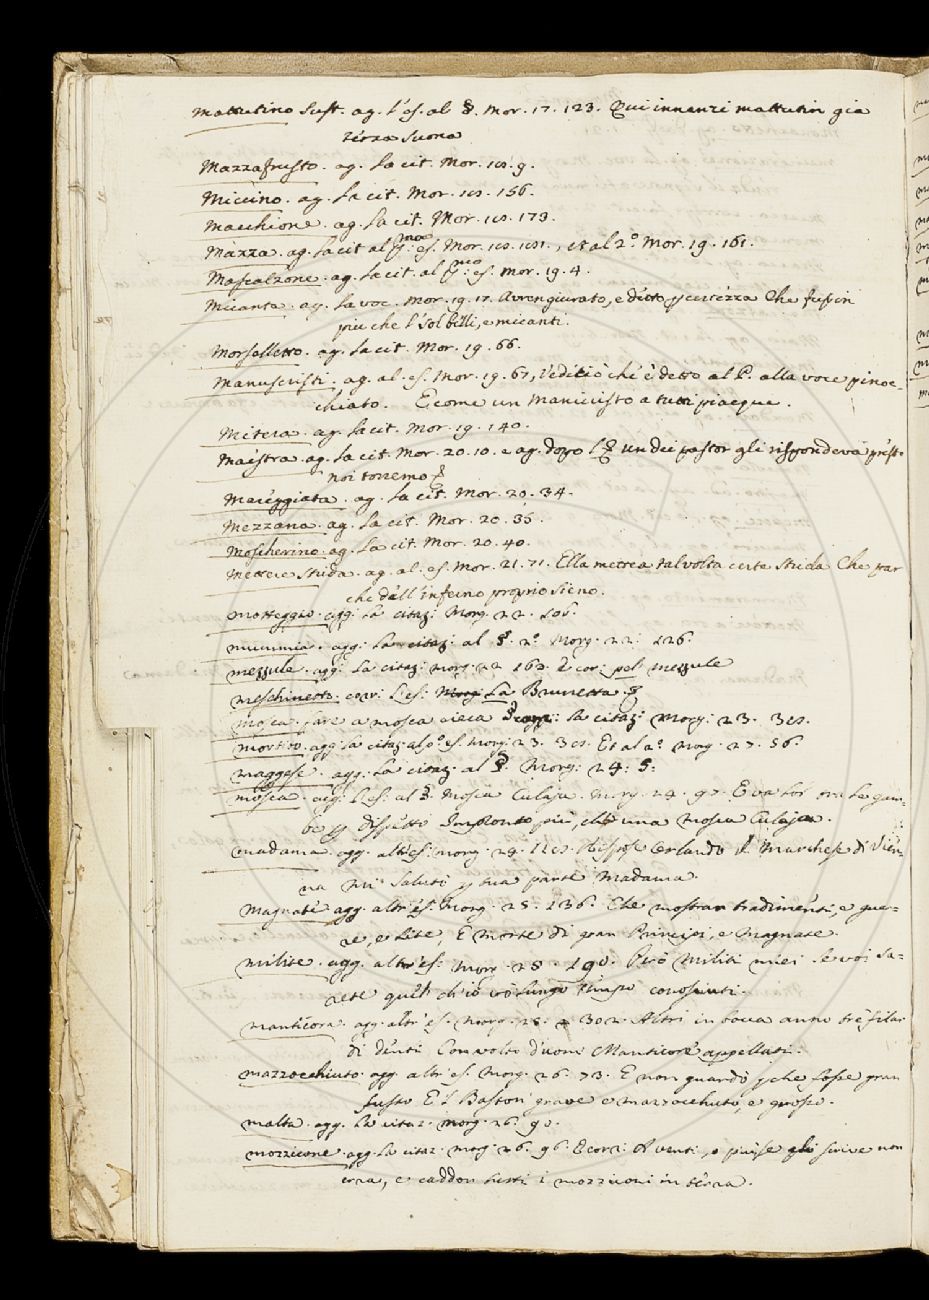 Mattutino Sust. ag. l'es. al §. Mor. 17. 123. Qui innanzi mattutin gia
terza suona
Mazzafrusto. ag. la cit. Mor. 10. 9.
Miccino. ag. la cit. Mor. 10. 156.
Macchione. ag. la cit. Mor. 10. 173.
Mazza. ag. la cit al pmo: es. Mor. 10. 101., et al 2º. Mor. 19. 161.
Mascalzone. ag. la cit. al pmo: es. Mor. 19. 4.
Micante. ag. la voc. Mor. 19. 17. Avren giurato, e detto p certezza Che fussin
piu che 'l Sol belli, e micanti.
Morselletto. ag. la cit. Mor. 19. 66.
Manuscristi. ag. al. es. Mor. 19. 67, vedi ciò ch'è detto al P. alla voce pinoc-
chiato. E come un Manuscristo a tutti piacque.
Mitera. ag. la cit. Mor. 19. 140.
Maestra ag. la cit. Mor. 20. 10. e ag. dopo un dei pastor gli rispondeva presto
noi torremo
Mareggiata. ag. la cit. Mor. 20. 34.
Mezzana. ag. la cit. Mor. 20. 35.
Moscherino. ag. la cit. Mor. 20. 40.
Mettere Strida. ag. al. es. Mor. 21. 71. Ella mettea talvolta certe strida Che par
che dell'inferno proprio sieno.
motteggio. agg: la citaz: Morg. 22. 106.
mummia. agg: la citaz: al §. 2º. Morg. 22: 126.
mezzule. agg: la citaz: morg. 22 162. E cor: pel mezzule
meschinetto. corr: l'es: Morg: La Brunetta
mosca. fare a mosca cieca la citaz: Morg: 23. 30.
mortito. agg la citaz: al pº. es. Morg: 23. 30. Et al 2º. Morg. 27. 56.
maggese. agg: la citaz: al §. Morg: 24: 5:
mosca. agg: l'es: al §. Mosca Culaja. Morg. 24. 92. E va lor tra le gam-
be p dispetto Impronto più, ch'una mosca Culaja.
madama. agg. altr'es: morg. 24. Rispose Orlando il Marchese di Vien-
na Mi saluti p tua parte Madama.
Magnate agg. altr'es: Morg. 25. 136. Che mostran tradimenti, e guer-
re, e lite, E morte di gran Principi, e Magnate.
milite. agg. altr'es: Morg. 25. 190. Però militi miei se voi sa-
rete quelli ch'io v'ò lungo tempo conosciuti.
manticora. agg. altr'es. Morg. 25. 302. Altri in bocca anno tre filar
di denti Con volto d'uom Manticore appellati.
mazzocchiuto. agg. altr'es. Morg. 26. 73. E non guardò pche fosse gran
fusto E 'l Baston grave e mazzocchuto, e grosso.
malta. agg. la citaz. morg. 26. 90.
mozzicone. agg. la citaz. morg. 26. 96. E corr: scrive non
erra, e caddon i mozziconi in terra.